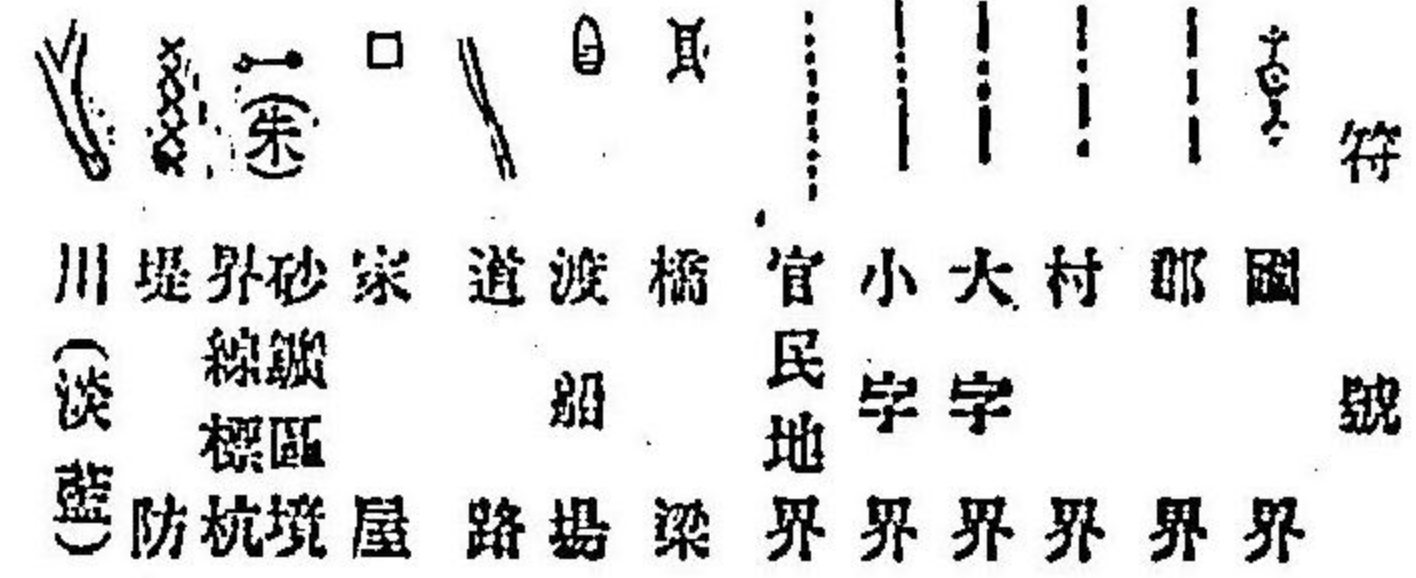 符號
國界
郡界
村界
大字界
小字界
官民地界
橋梁
渡船場
道路
家屋
砂鑛區境
界線標杭
(朱)
堤防
川(淡藍)